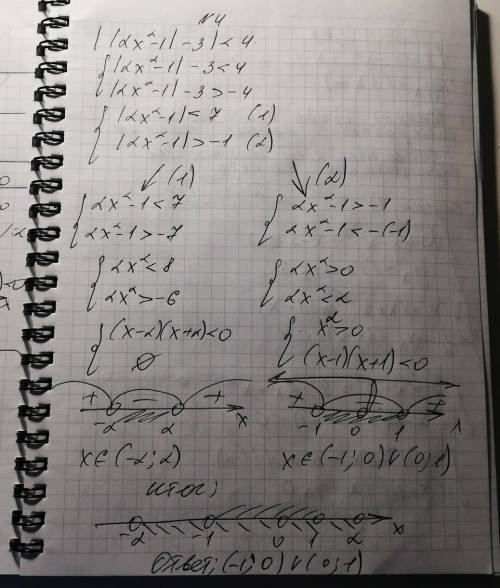 №4
||2x²-1|-3|<4
{|2x²-1|-3<4
{|2x²-1|-3>-4
{|2x²-1|<7 (1)
{|2x²-1|>-1 (2)
(1)
{2x²-1<7
{2x²-1>-7
{2x²<8
{2x²>-6
{(x-2)(x+2)<0
{∅
+ - +
-2 2 x
x∈(-2;2)
(2)
{2x²-1>-1
{2x²-1<-(-1)
{2x²>0
{2x²<2
{x²>0
{(x-1)(x+1)<0
+ - +
-1 0 1 x
x∈(-1;0)∪(0;1)
итог:
-2 -1 0 1 2 x
Ответ: (-1;0)∪(0;1)